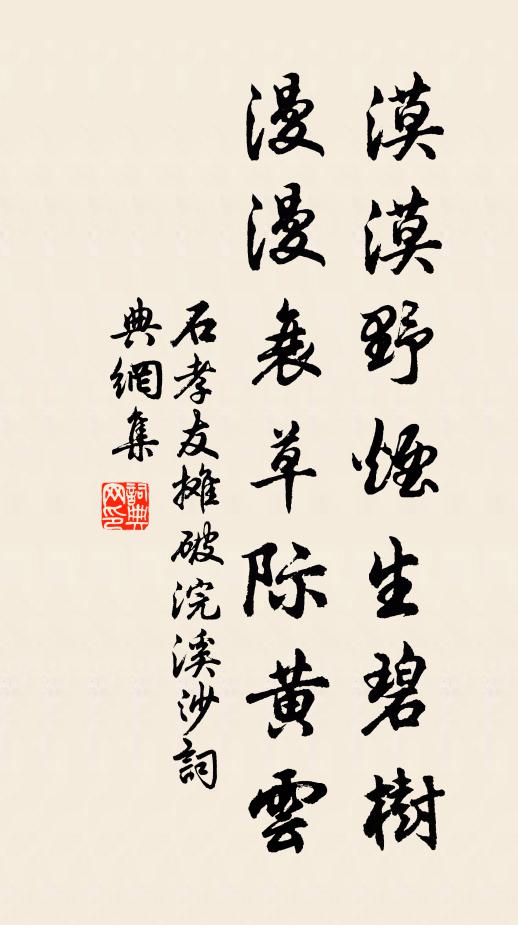 漠漠野煙生碧樹
漫漫衰草际黃雲
石孝友攤破浣溪沙詞
典網集
詞典网印